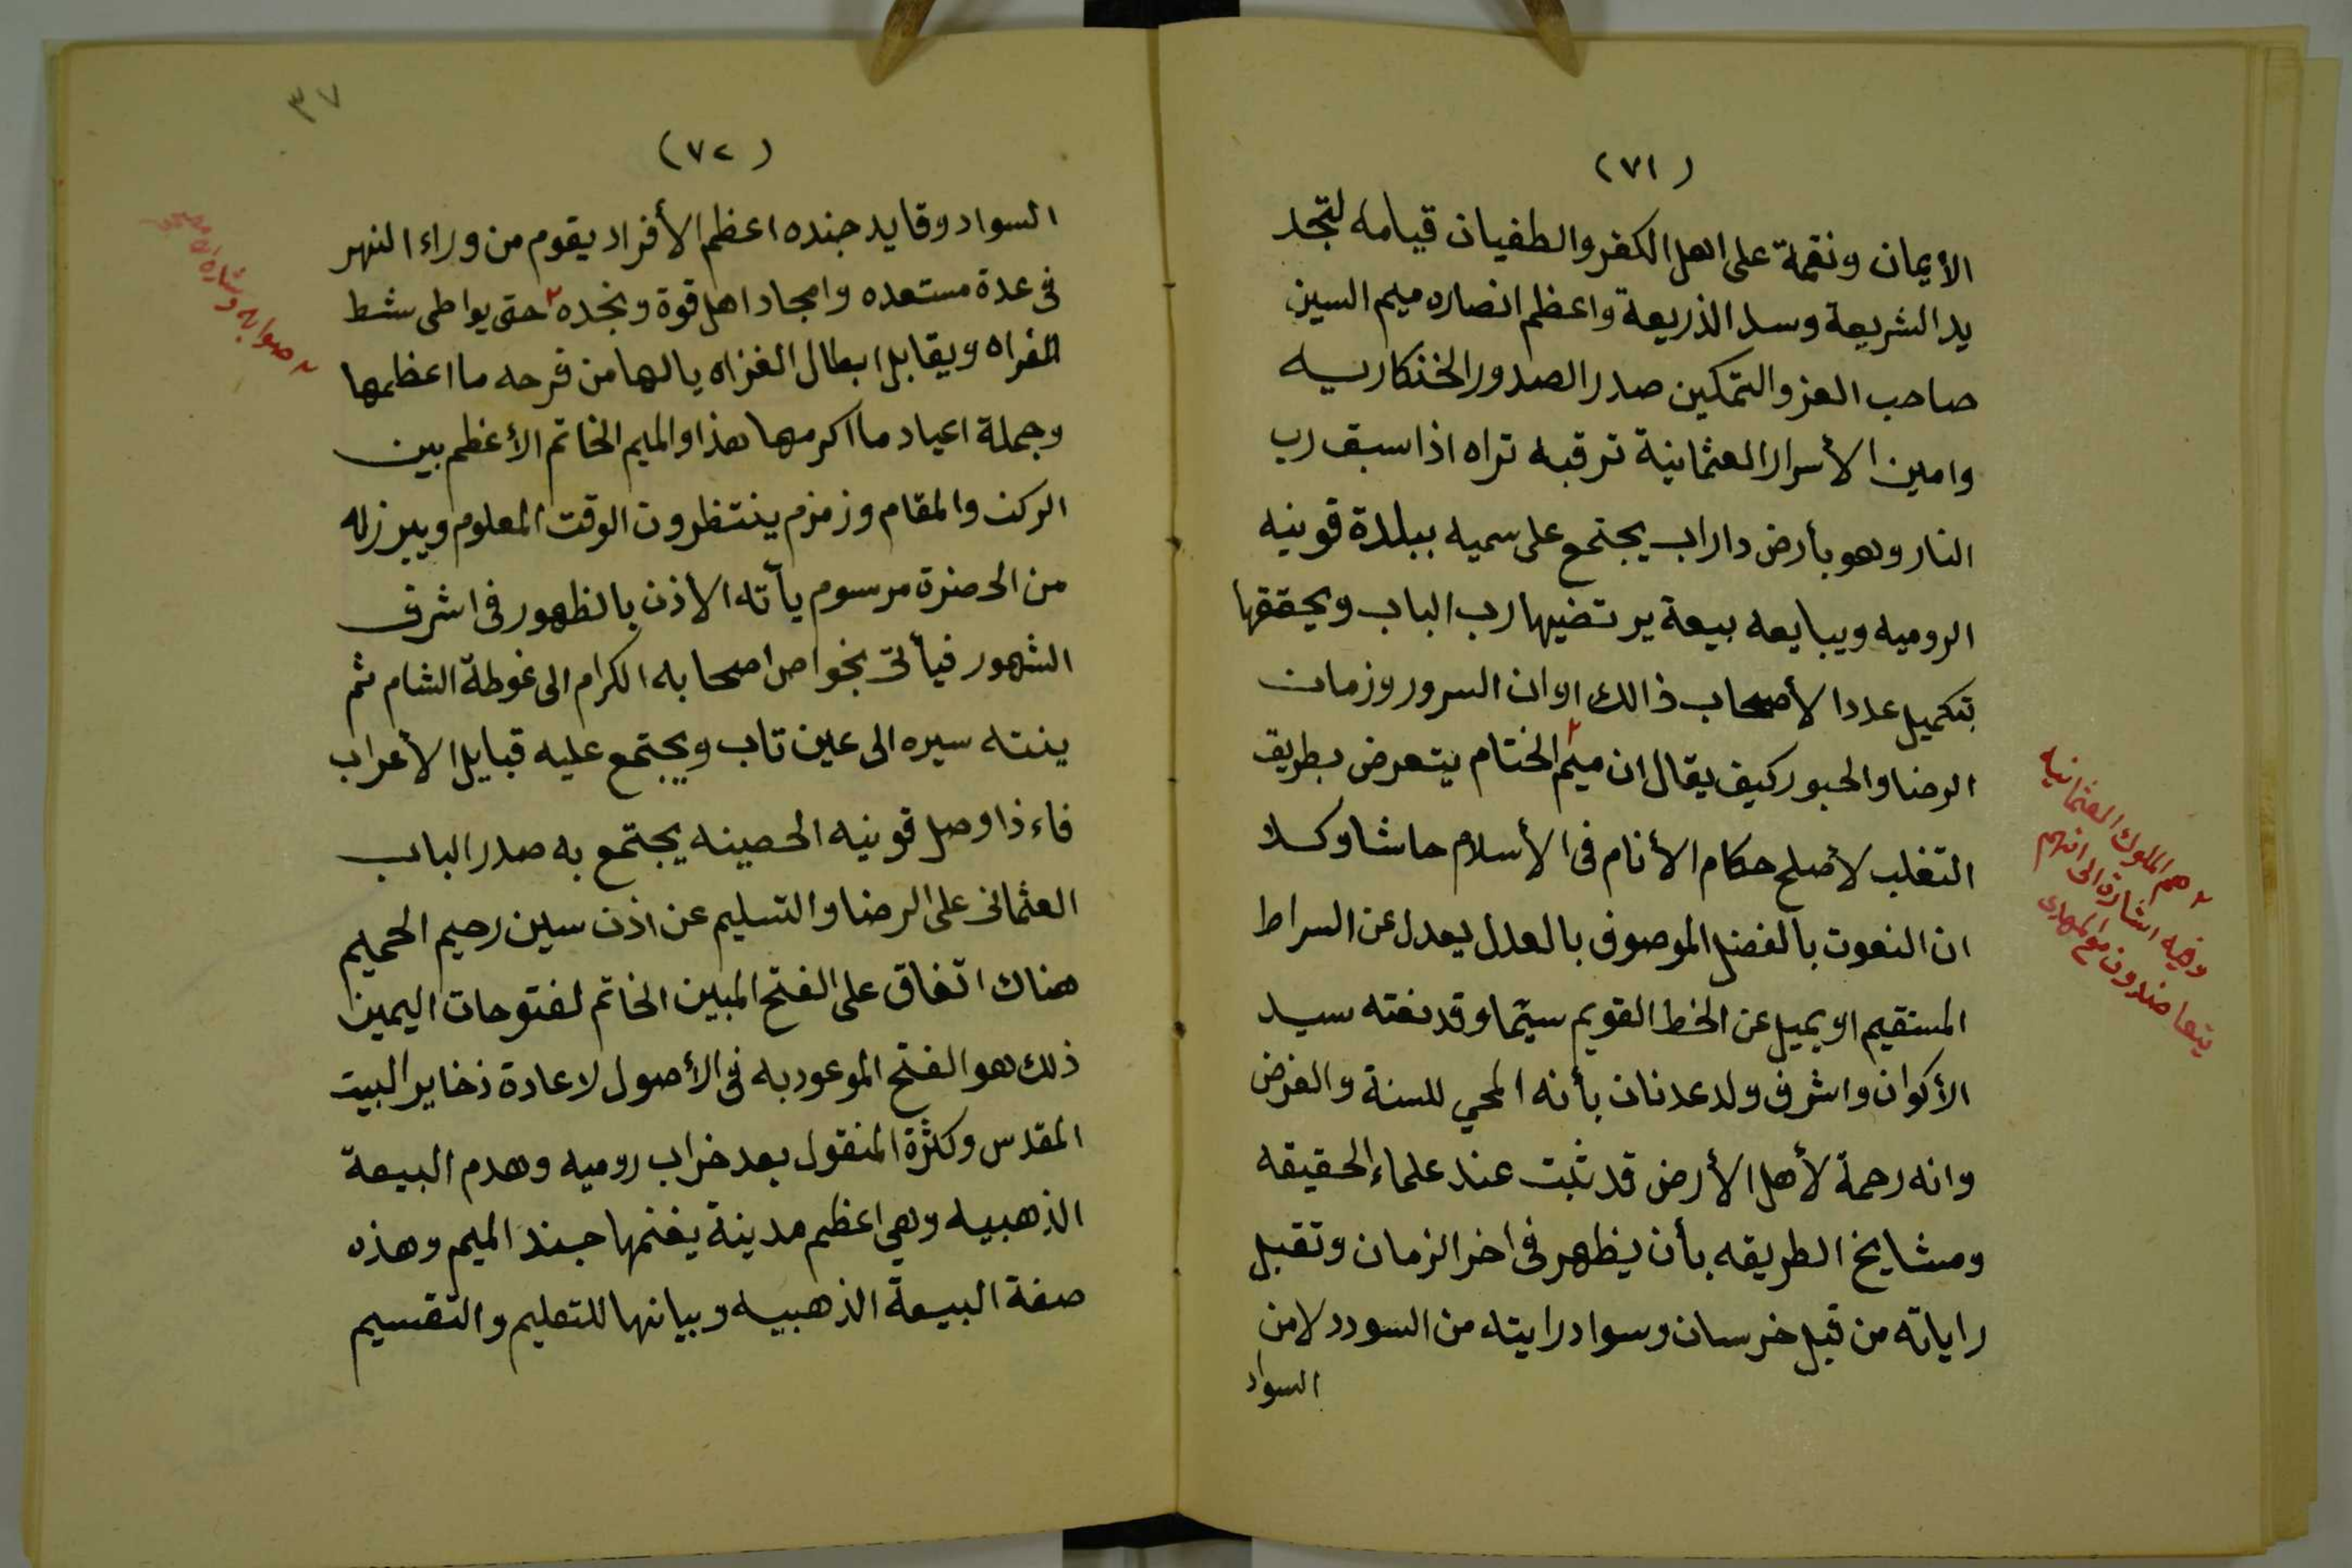 (٧١)
الأيمان ونقمة على اهل الكفر والطغيان قيامه لتجد
يد الشريعة وسد الذريعة واعظم انصاره ميم السين
صاحب العز والتمكين صدر الصدور الخنكاريه
وامين الأسرار العثمانية ترقبه تراه اذا سبق رب
النار وهو بأرض داراب يجتمع على سميه ببلدة قونيه
الروميه ويبايعه بيعة يرتضيها رب الباب ويحققها
بتكميل عدد الأصحاب ذالك اوان السرور وزمان
الرضا والحبور كيف يقال ان ميم ٢ الختام يتعرض بطريق
التغلب لأصلح حكام الأنام فى الأسلام حاشا وكلا
ان النعوت بالفضل الموصوف بالعدل يعدل عن السراط
المستقيم او يميل عن الخط القويم سيّما وقد نعته سيد
الأكوان واشرف ولد عدنان بأنه المحي للسنة والفرض
وانه رحمة لأهل الأرض قد ثبت عند علماء الحقيقه
ومشايخ الطريقه بأن يظهر فى اخر الزمان وتقبل
راياته من قبل خرسان وسواد رايته من السودد لا من
السواد
٢ هم الملوك العثمانيه
وفيه اشارة الى انهم
يتعاضدون مع المهدى
٣٧
(٧٢)
السواد وقايد جنده اعظم الأفراد يقوم من وراء النهر
فى عدة مستعده وامجاد اهل قوة ونجده ٢ حتى يواطى شط
الفراه ويقابل ابطال الغزاه يالها من فرحه ما اعظمها
وجملة اعياد ما اكرمها هذا والميم الخاتم الأعظم بين
الركن والمقام وزمزم ينتظرون الوقت المعلوم ويبرز له
من الحضرة مرسوم يأته الأذن بالظهور فى اشرف
الشهور فيأتى بخواص اصحابه الكرام الى غوطة الشام ثم
ينته سيره الى عين تاب ويجتمع عليه قبايل الأعراب
فاءذا وصل قونيه الحصينه يجتمع به صدر الباب
العثمانى على الرضا والتسليم عن اذن سين رحيم الحميم
هناك اتفاق على الفتح المبين الخاتم لفتوحات اليمين
ذلك هو الفتح الموعود به فى الأصول لاعادة ذخاير البيت
المقدس وكثرة المنقول بعد خراب روميه وهدم البيعة
الذهبيه وهى اعظم مدينة يغنمها جند الميم وهذه
صفة البيعة الذهبيه وبيانها للتعليم والتقسيم
٢ صوابه